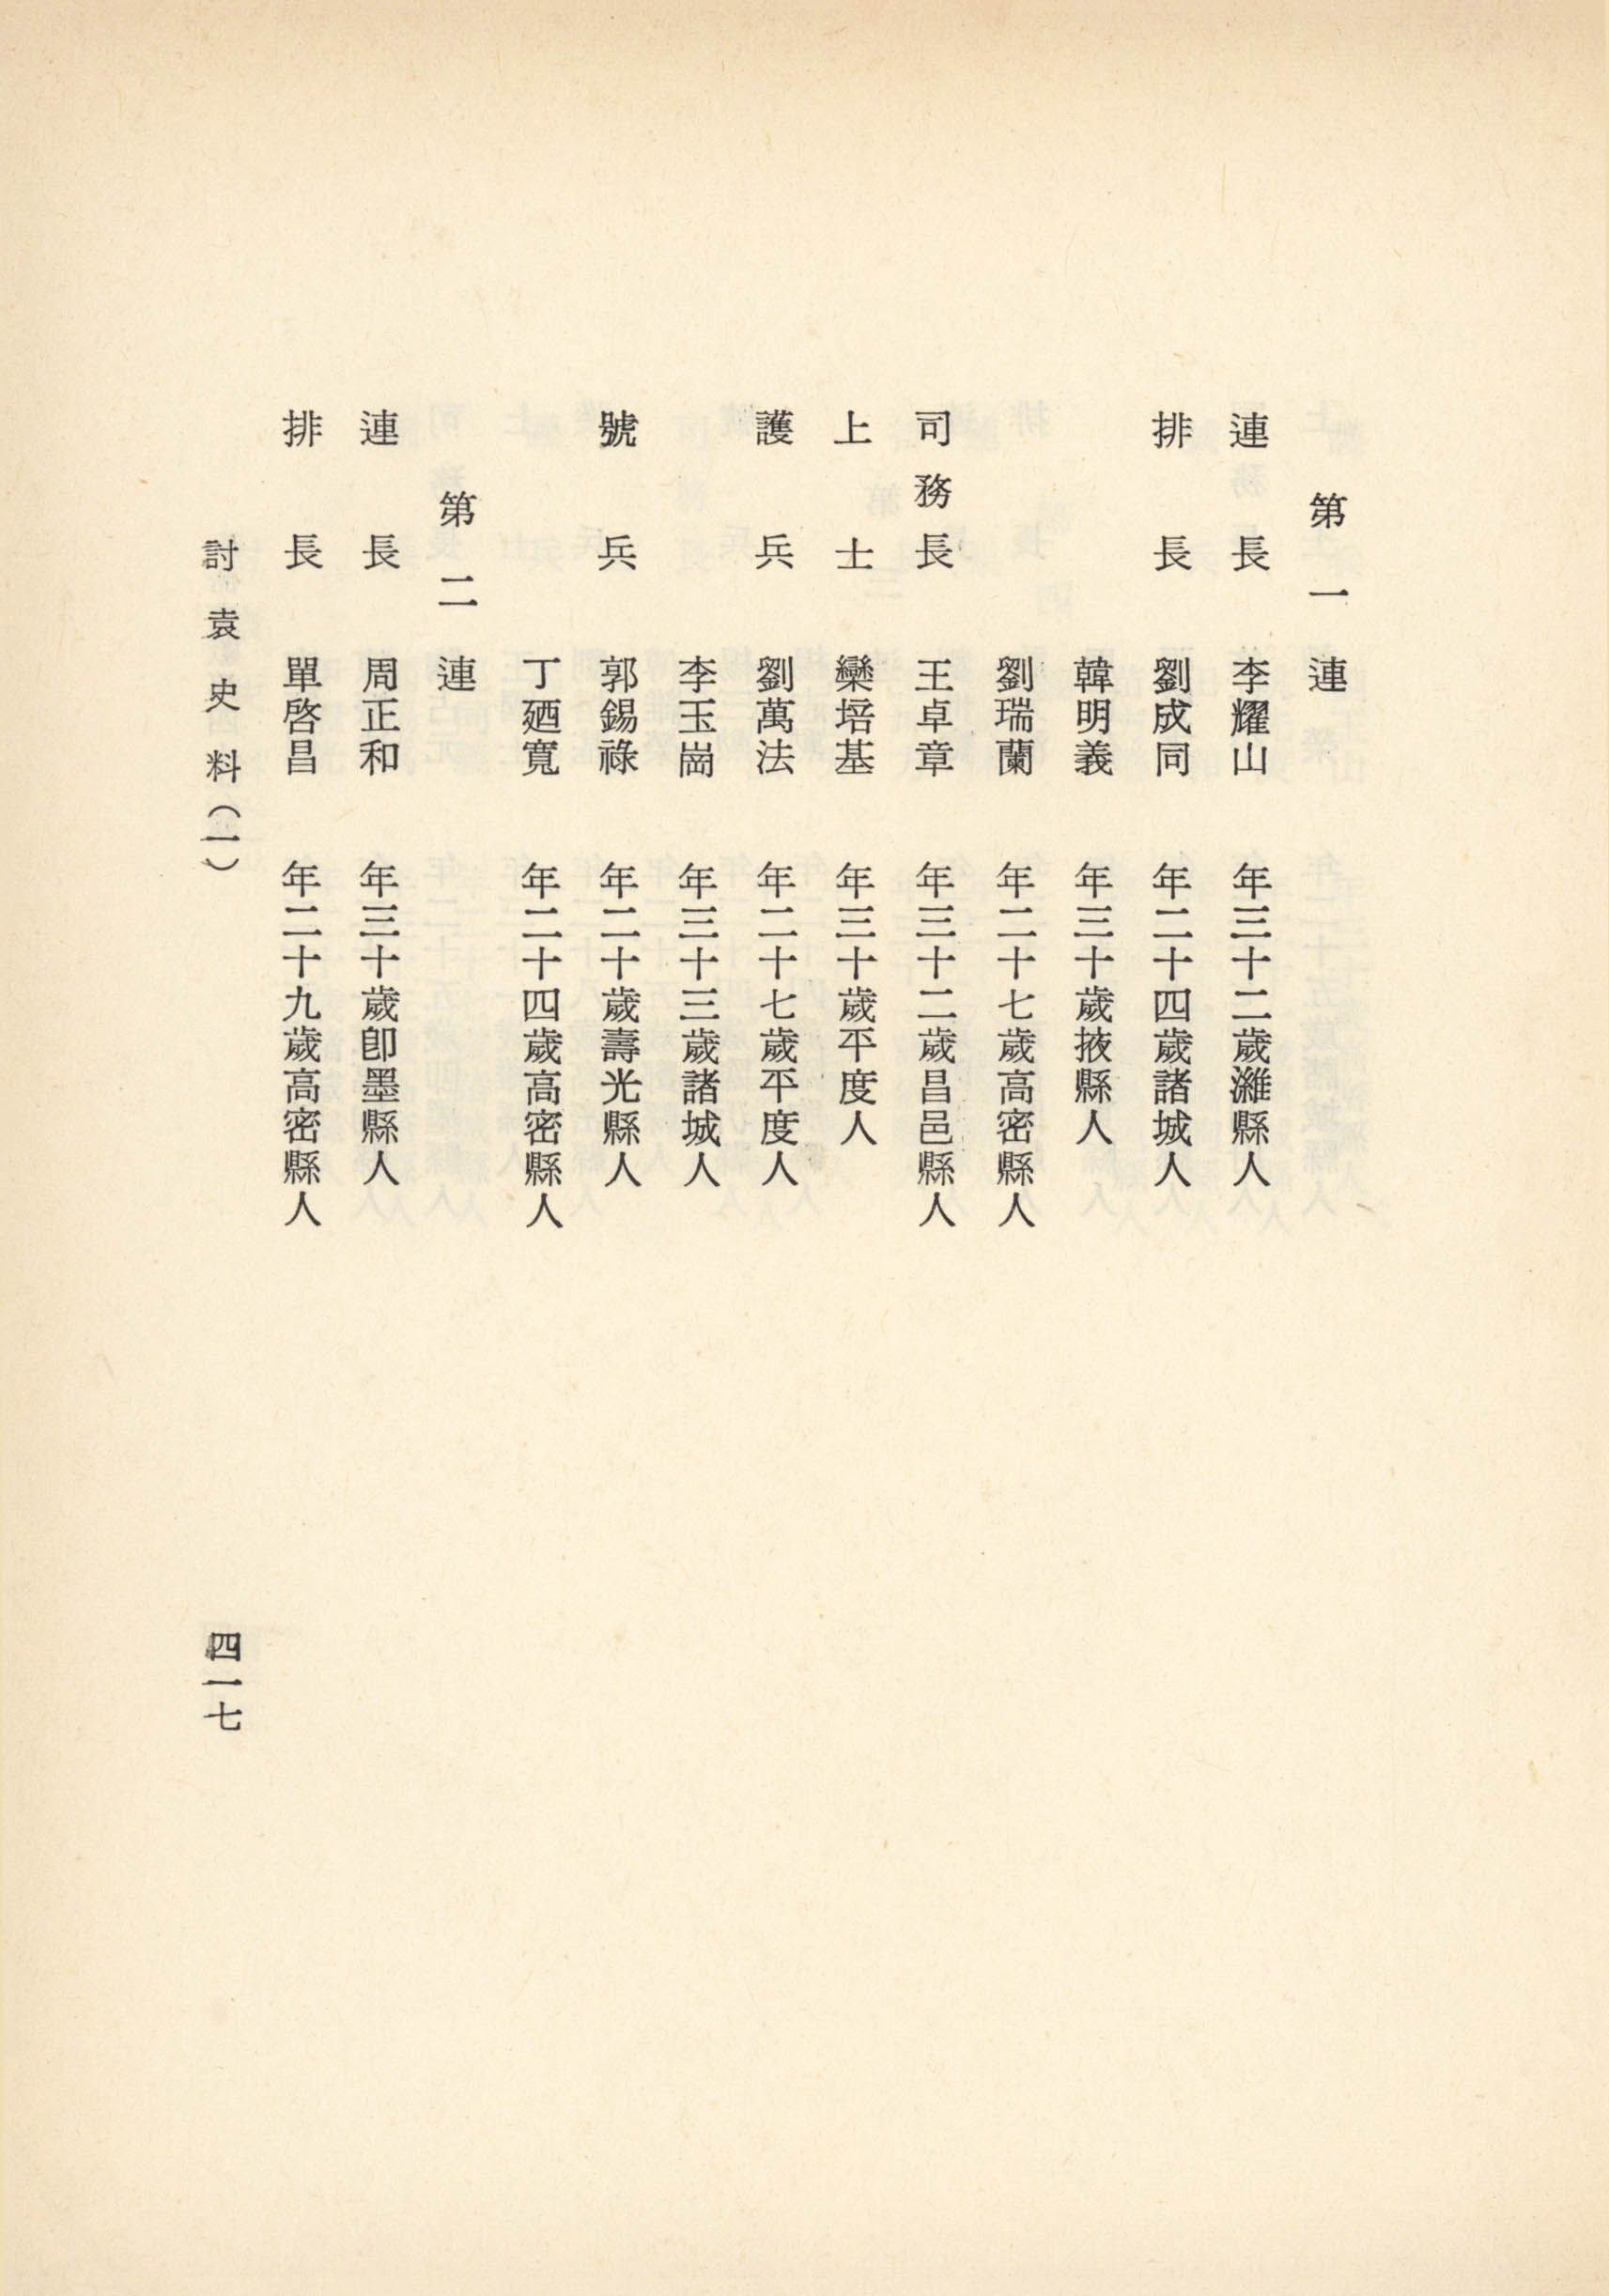 第一連
連長　李耀山　年三十二歲濰縣人
排長　劉成同　年二十四歲諸城人
韓明義　年三十歲掖縣人
劉瑞蘭　年二十七歲高密縣人
司務長　王卓章　年三十二歲昌邑縣人
上士　欒培基　年三十歲平度人
護兵　劉萬法　年二十七歲平度人
李玉崗　年三十三歲諸城人
號兵　郭錫祿　年二十歲壽光縣人
丁廼寬　年二十四歲高密縣人
第二連
連長　周正和　年三十歲卽墨縣人
排長　單啓昌　年二十九歲高密縣人
討袁史料（一）
四一七